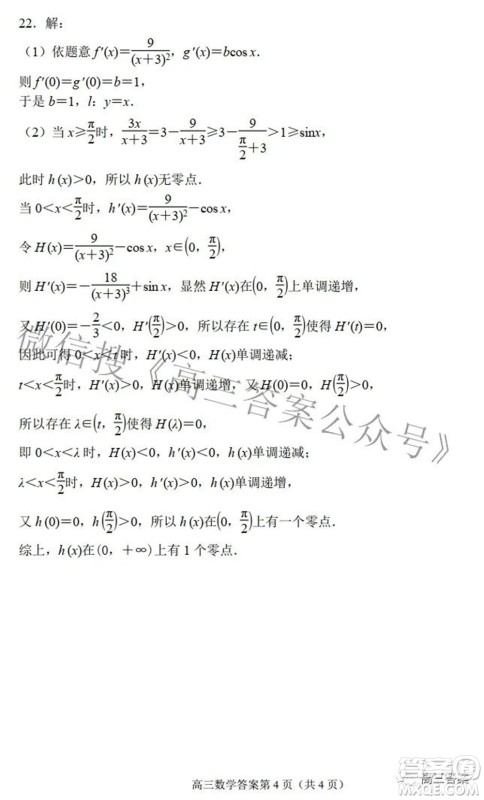 22．解：
（1）依题意 f′(x)=9/(x+3)²，g′(x)=bcos x．
则 f′(0)=g′(0)=b=1，
于是 b=1，l：y=x．
（2）当 x≥π/2时，3x/(x+3)=3−9/(x+3)≥3−9/(π/2+3)>1≥sinx，
此时 h(x)>0，所以 h(x)无零点．
当 0<x<π/2时，h′(x)=9/(x+3)²−cosx，
令 H(x)=9/(x+3)²−cosx，x∈(0，π/2)，
则 H′(x)=−18/(x+3)³+sinx，显然 H′(x)在(0，π/2)上单调递增，
又 H′(0)=−2/3<0，H′(π/2)>0，所以存在 t∈(0，π/2)使得 H′(t)=0，
因此可得 0<x<t 时，H′(x)<0，H(x)单调递减；
t<x<π/2时，H′(x)>0，H(x)单调递增，又 H(0)=0，H(π/2)>0，
所以存在 λ∈(t，π/2)使得 H(λ)=0，
即 0<x<λ 时，H(x)<0，h′(x)<0，h(x)单调递减；
λ<x<π/2时，H(x)>0，h′(x)>0，h(x)单调递增，
又 h(0)=0，h(π/2)>0，所以 h(x)在(0，π/2)上有一个零点．
综上，h(x)在(0，+∞)上有 1 个零点．
微信搜《高三答案公众号》
高三数学答案第 4 页（共 4 页）
高三答案